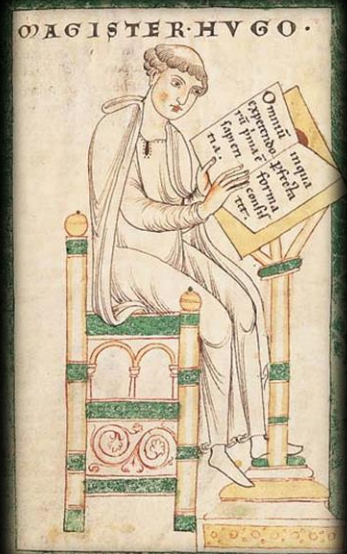 MAGISTER·HVGO·
Omniũ
expetendo
rũ pma ẽ
sapien
tia.
inqua
pfecta
forma
consis
tit.